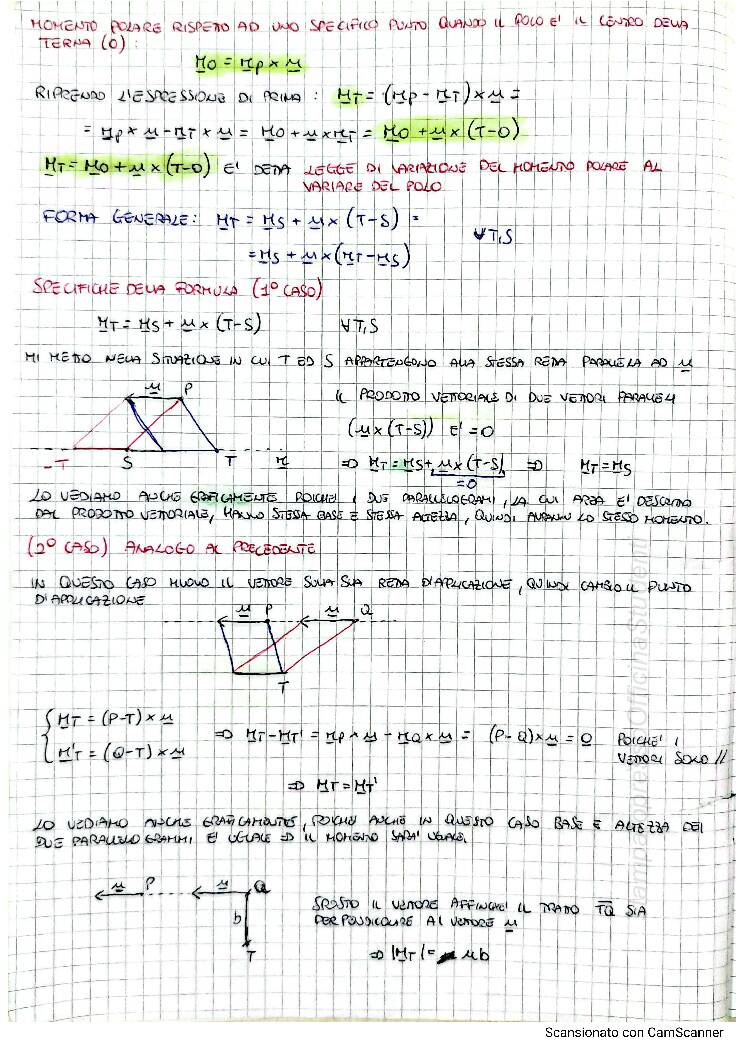 MOMENTO POLARE RISPETTO AD UNO SPECIFICO PUNTO QUANDO IL POLO E' IL CENTRO DELLA
TERNA (O) :
M̲O = r̲P × u̲
RIPRENDO L'ESPRESSIONE DI PRIMA : M̲T = (r̲P - r̲T) × u̲ =
= r̲P × u̲ - r̲T × u̲ = M̲O + u̲ × r̲T = M̲O + u̲ × (T-O)
M̲T = M̲O + u̲ × (T-O) E' DETTA LEGGE DI VARIAZIONE DEL MOMENTO POLARE AL
VARIARE DEL POLO
FORMA GENERALE: M̲T = M̲S + u̲ × (T-S) =
= M̲S + u̲ × (r̲T - r̲S)
∀T,S
SPECIFICHE DELLA FORMULA (1° CASO)
M̲T = M̲S + u̲ × (T-S) ∀T,S
MI METTO NELLA SITUAZIONE IN CUI T ED S APPARTENGONO ALLA STESSA RETTA PARALLELA AD u̲
u̲ P
-T S T r̲
IL PRODOTTO VETTORIALE DI DUE VETTORI PARALLELI
(u̲ × (T-S)) E' = 0
⇒ M̲T = M̲S + u̲ × (T-S) ⇒ M̲T = M̲S
= 0
LO VEDIAMO ANCHE GRAFICAMENTE POICHE' I DUE PARALLELOGRAMMI, LA CUI AREA E' DESCRITTA
DAL PRODOTTO VETTORIALE, HANNO STESSA BASE E STESSA ALTEZZA, QUINDI AVRANNO LO STESSO MOMENTO.
(2° CASO) ANALOGO AL PRECEDENTE
IN QUESTO CASO MUOVO IL VETTORE SULLA SUA RETTA D'APPLICAZIONE, QUINDI CAMBIO IL PUNTO
D'APPLICAZIONE
u̲ P u̲ Q
T
M̲T = (P-T) × u̲
M̲'T = (Q-T) × u̲
⇒ M̲T - M̲T' = r̲P × u̲ - r̲Q × u̲ = (P-Q) × u̲ = 0̲ POICHE' I
VETTORI SONO //
⇒ M̲T = M̲T'
LO VEDIAMO ANCHE GRAFICAMENTE, POICHE' ANCHE IN QUESTO CASO BASE E ALTEZZA DEI
DUE PARALLELOGRAMMI E' UGUALE ⇒ IL MOMENTO SARA' UGUALE.
u̲ P u̲ Q
b
T
SPOSTO IL VETTORE AFFINCHE' IL TRATTO T̅Q̅ SIA
PERPENDICOLARE AL VETTORE u̲
⇒ |M̲T| = ub
Scansionato con CamScanner